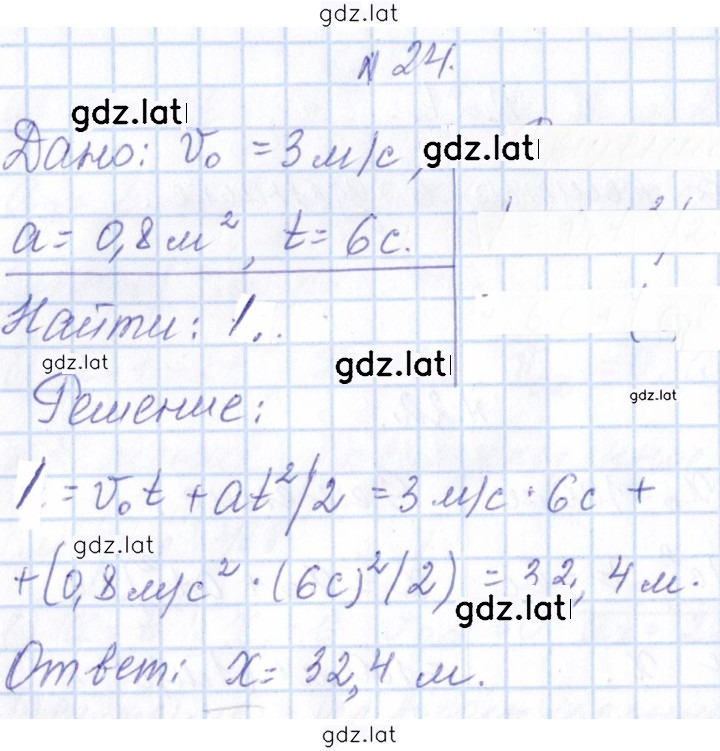 gdz.lat
N 24.
gdz.lat
Дано: v₀ = 3 м/с, gdz.lat
a = 0,8 м², t = 6 с.
Найти: l.
gdz.lat gdz.lat
gdz.lat
Решение:
l = v₀t + at²/2 = 3 м/с · 6 с +
gdz.lat
+ (0,8 м/с² · (6с)²/2) = 32,4 м.
gdz.lat
Ответ: x = 32,4 м.
gdz.lat